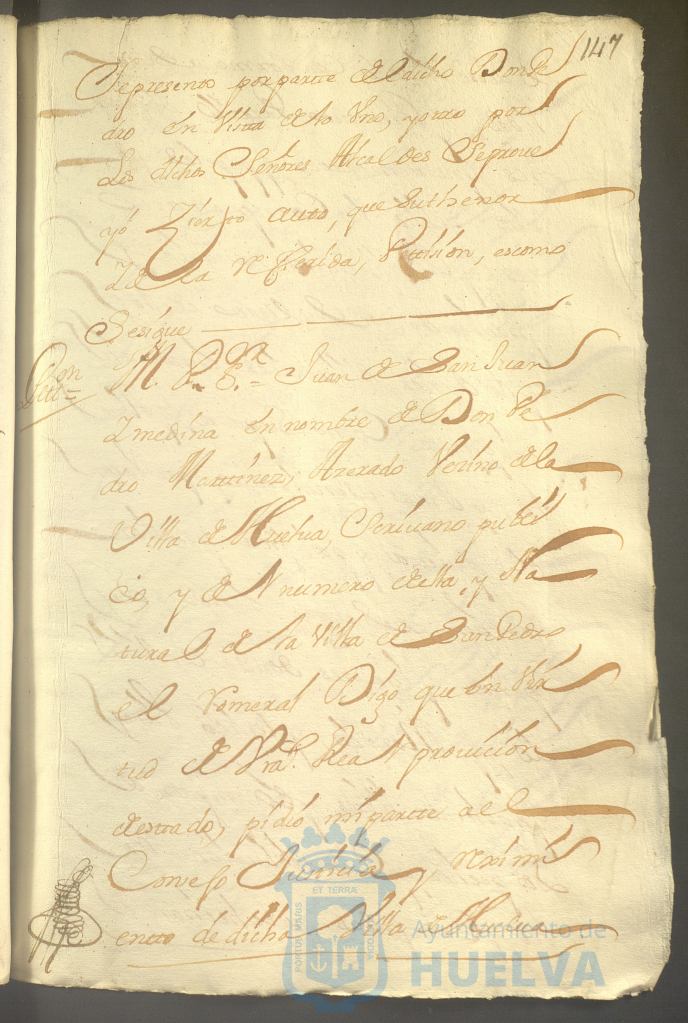 147
Se presento por partte de el dicho Don Pe
dro en Vistta de lo Uno, y otro por
Los dichos Señores Alcaldes Se prove
yó Zierto autto, que Su thenor
Y de la referida, Pettisión, es como
Se sigue
Petton=
M. P. Sr.= Juan de San Juan
Y medina en nombre de Don Pe
dro Marttinez, Azerado Vezino de la
Villa de Huelva, Scrivano publi
co, y del numero de ella, y Na
tural de la Villa de San Pedro
el Romeral Digo que en Vir
tud de Vra. Real provicion
de esttado, pidió mi partte a el
Consejo Justticia y rexim
entto de dicha Villa de Huel
PORTUS MARIS ET TERRÆ CUSTODIA
Ayuntamiento de
HUELVA